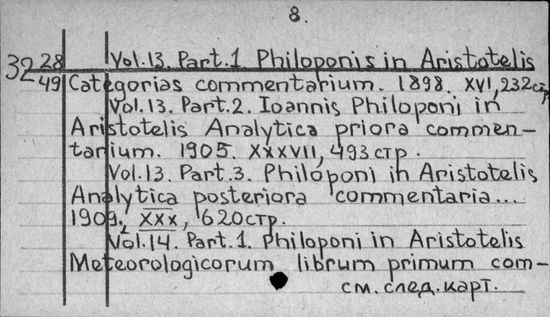 8.
32 28
49
Vol.13. Part.1. Philoponis in Aristotelis
Categorias commentarium. 1898. XVI, 232стр.
Vol.13. Part.2. Ioannis Philoponi in
Aristotelis Analytica priora commen-
tarium. 1905. XXXVII, 493 стр.
Vol.13. Part.3. Philoponi in Aristotelis
Analytica posteriora commentaria...
1909. XXX, 620стр.
Vol.14. Part.1. Philoponi in Aristotelis
Meteorologicorum librum primum com-
см. след. карт.